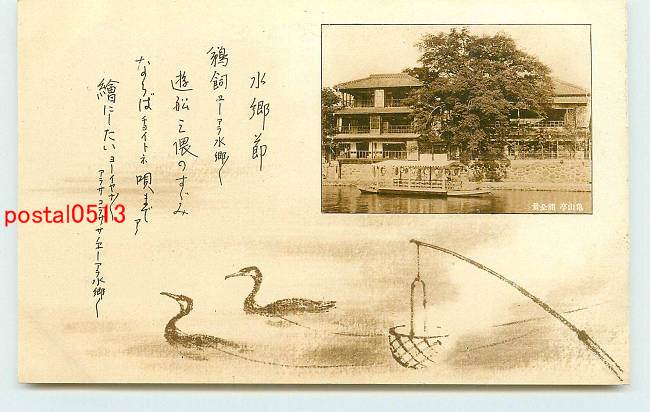 水郷節
鵜飼ユーアラ水郷〱
遊船三隈のすゞみ
ならばチョイトネ 唄まで
繪にしたいヨーイヤサー
アラサ コラサノサ ユーアラ水郷〱
亀山亭 浦全景
postal0513